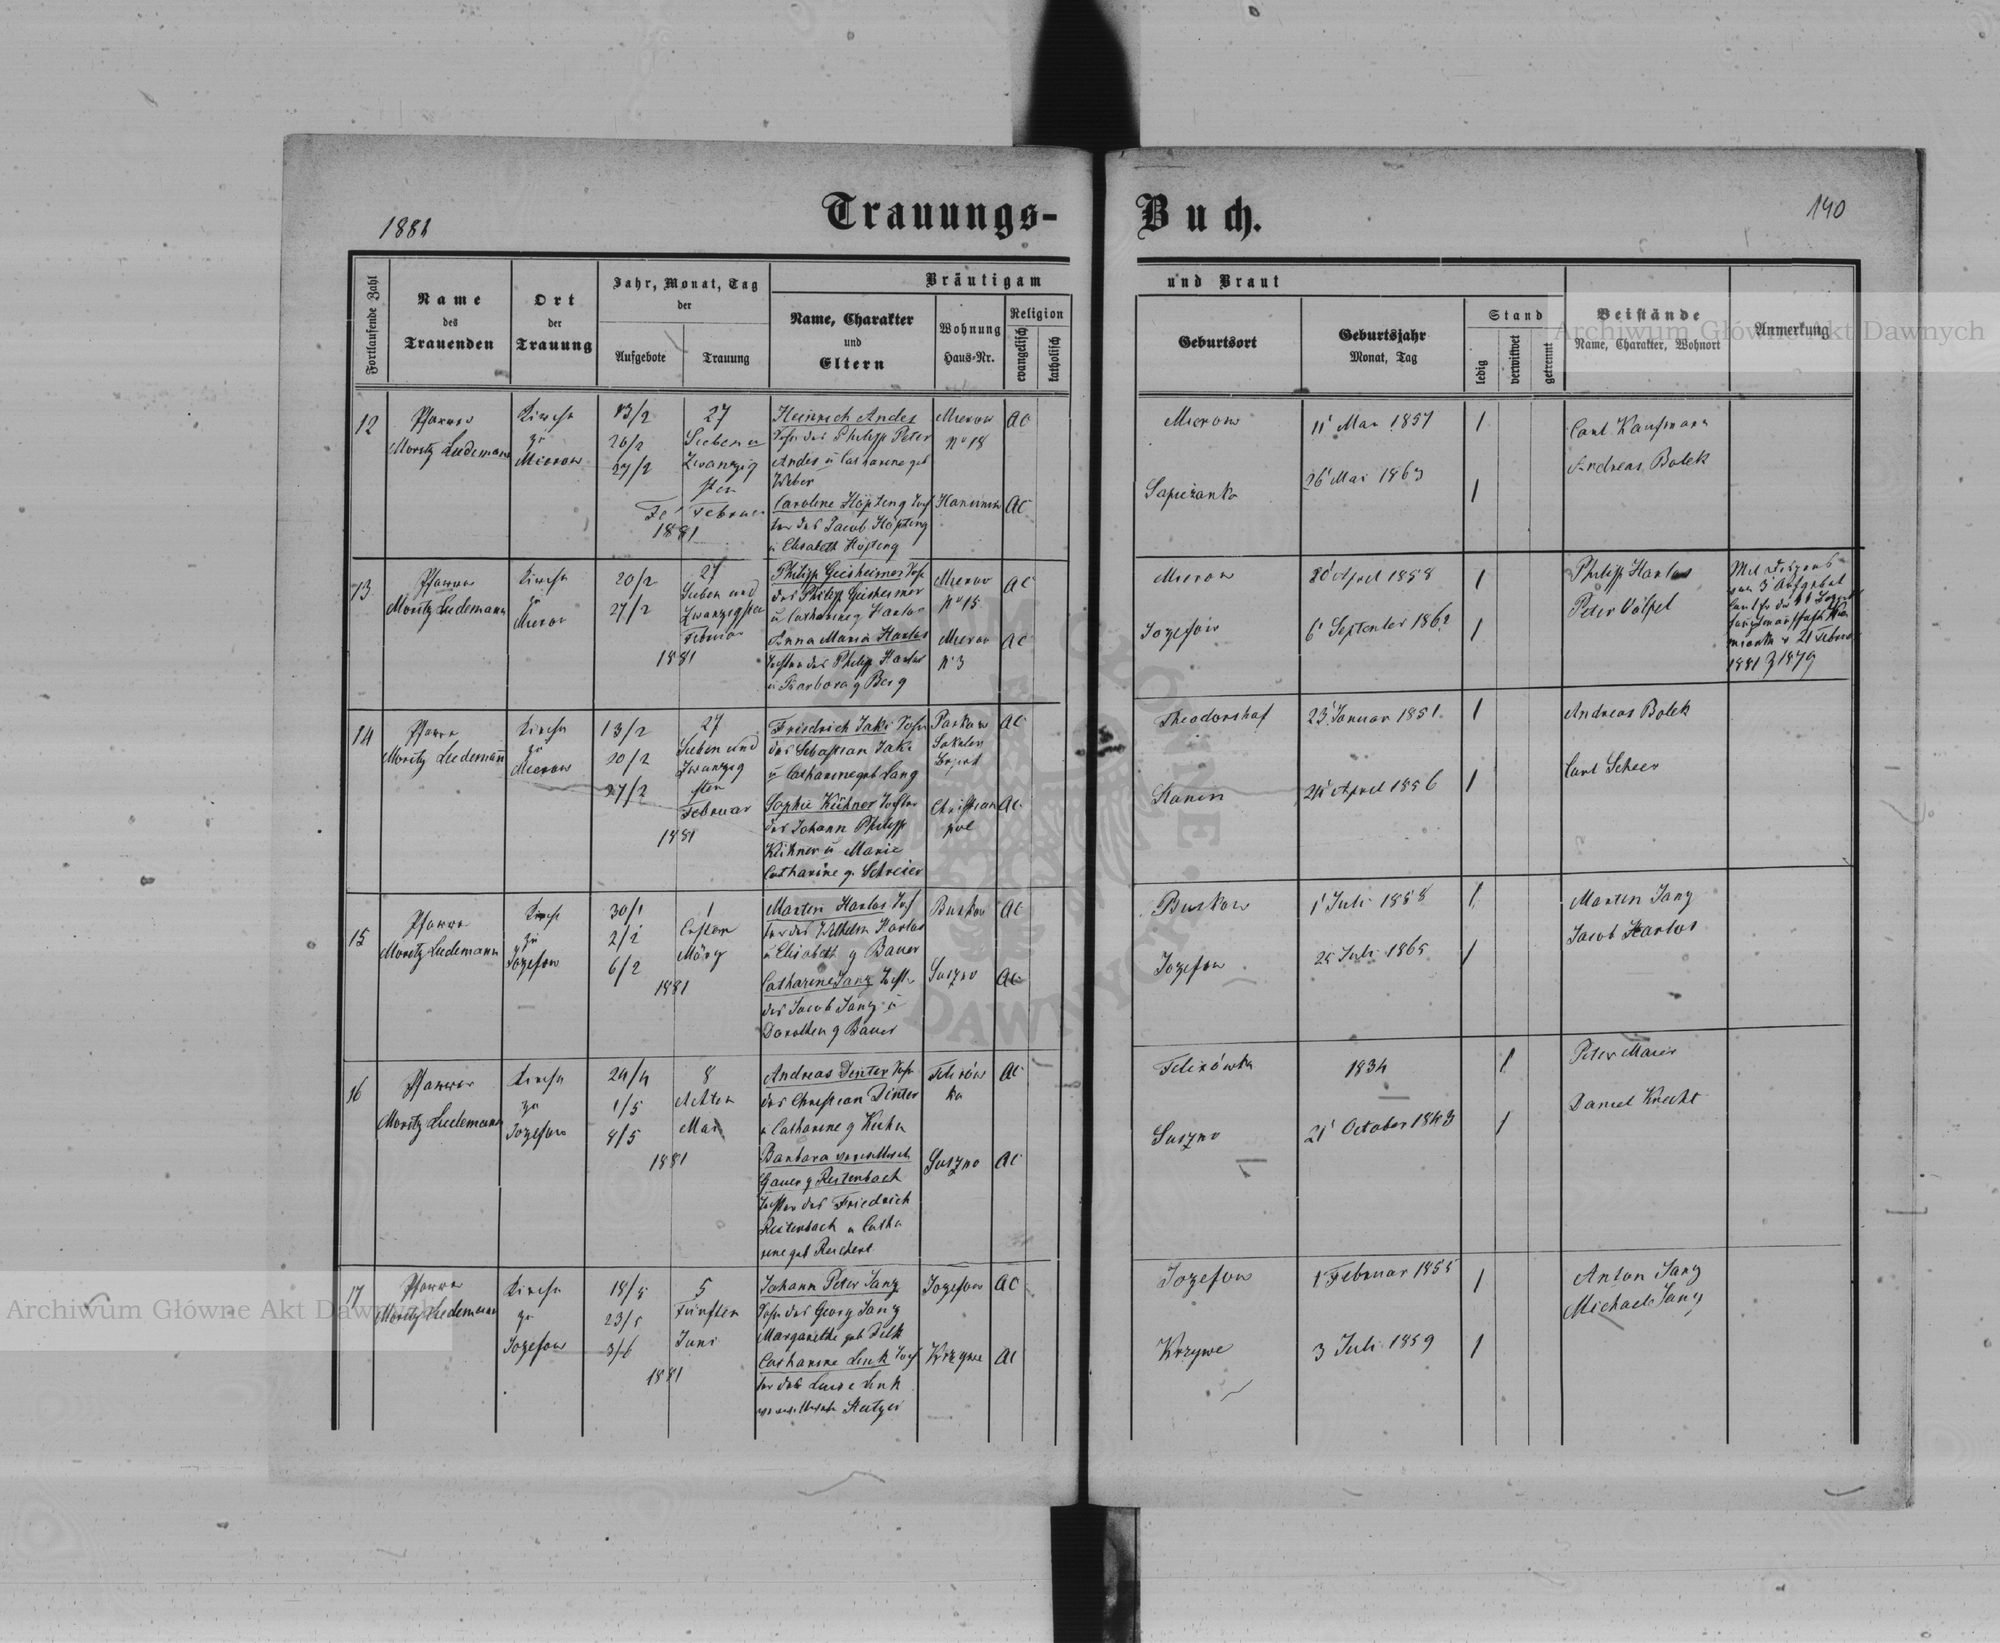 1881
Trauungs-Buch.
190
Fortlaufende Zahl
Name
des
Trauenden
Ort
der
Trauung
Jahr, Monat, Tag
der
Aufgebote
Trauung
Bräutigam und Braut
Name, Charakter
und
Eltern
Wohnung
Haus-Nr.
Religion
evangelisch
katholisch
Geburtsort
Geburtsjahr
Monat, Tag
Stand
ledig
verwitwet
getrennt
Beistände
Name, Charakter, Wohnort
Anmerkung
12
Pfarrer
Moritz Luedemann
Kirche
zu
Mierow
13/2
20/2
27/2
27
Sieben u
Zwanzig
sten
Februar
1881
Heinrich Andes
Sohn des Philipp Peter
Andes u Catharine geb
Weber
Mierow
No 18
AC
Mierow
11 Mai 1857
1
Carl Kaufmann
Andreas Bolek
Caroline Höpfing Toch
ter des Jacob Höpfing
u Elisabeth Höfling
AC
Sapiezanka
26 Mai 1863
1
13
Pfarrer
Moritz Luedemann
Kirche
zu
Mierow
20/2
27/2
27
Sieben und
Zwanzigsten
Februar
1881
Philipp Geisheimer Sohn
des Philipp Geisheimer
u Catharine g Harlos
Mierow
No 15
AC
Mierow
20 April 1858
1
Philipp Harlos
Peter Völpel
Anna Maria Harlos
Tochter des Philipp Harlos
u Barbara g Berg
Mierow
N 3
AC
Jozefow
6 September 1862
1
21 Februar
1881 Z 1879
14
Pfarrer
Moritz Luedemann
Kirche
zu
Mierow
13/2
20/2
27/2
27
Sieben und
Zwanzig
sten
Februar
1881
Friedrich Jaki Sohn
des Sebastian Jaki
u Catharine geb Lang
AC
Theodorshof
23 Januar 1851
1
Andreas Bolek
Carl Scheer
Sophie Kühner Tochter
des Johann Philipp
Kühner u Marie
Catharine g. Schreier
Christian
pol
AC
Kanin
24 April 1856
1
15
Pfarrer
Moritz Luedemann
Kirche
zu
Jozefow
30/1
2/2
6/2
1
Ersten
März
1881
Martin Harlos
des Wilhelm Harlos
u Elisabeth g Bauer
Buskow
AC
Buskow
1 Juli 1858
1
Martin Jang
Jacob Harlos
Catharine Jang Tochter
des Jacob Jang u
Dorothea g Bauer
Suszno
AC
Jozefow
25 Juli 1865
1
16
Pfarrer
Moritz Luedemann
Kirche
zu
Jozefow
24/4
1/5
8/5
8
Achten
Mai
1881
Andreas Dinter Sohn
des Christian Dinter
u Catharine g Kuhn
Felizów
ka
AC
Felizówka
1834
1
Peter Maier
Daniel Knecht
Barbara verwittwete
Gauer g Reitenbach
Tochter des Friedrich
Reitenbach u Catha
rine geb Reichert
Suszno
AC
Suszno
21 October 1843
1
17
Pfarrer
Moritz Luedemann
Kirche
zu
Jozefow
18/5
23/5
3/6
5
Fünften
Juni
1881
Johann Peter Jang
Sohn des Georg Jang
Margarethe geb Filk
Jozefow
AC
Jozefow
1 Februar 1855
1
Anton Jang
Michael Jang
Catharine Link Toch
ter der Luise Link
Krzywe
AC
Krzywe
3 Juli 1859
1
Archiwum Główne Akt Dawnych
Archiwum Główne Akt Dawnych